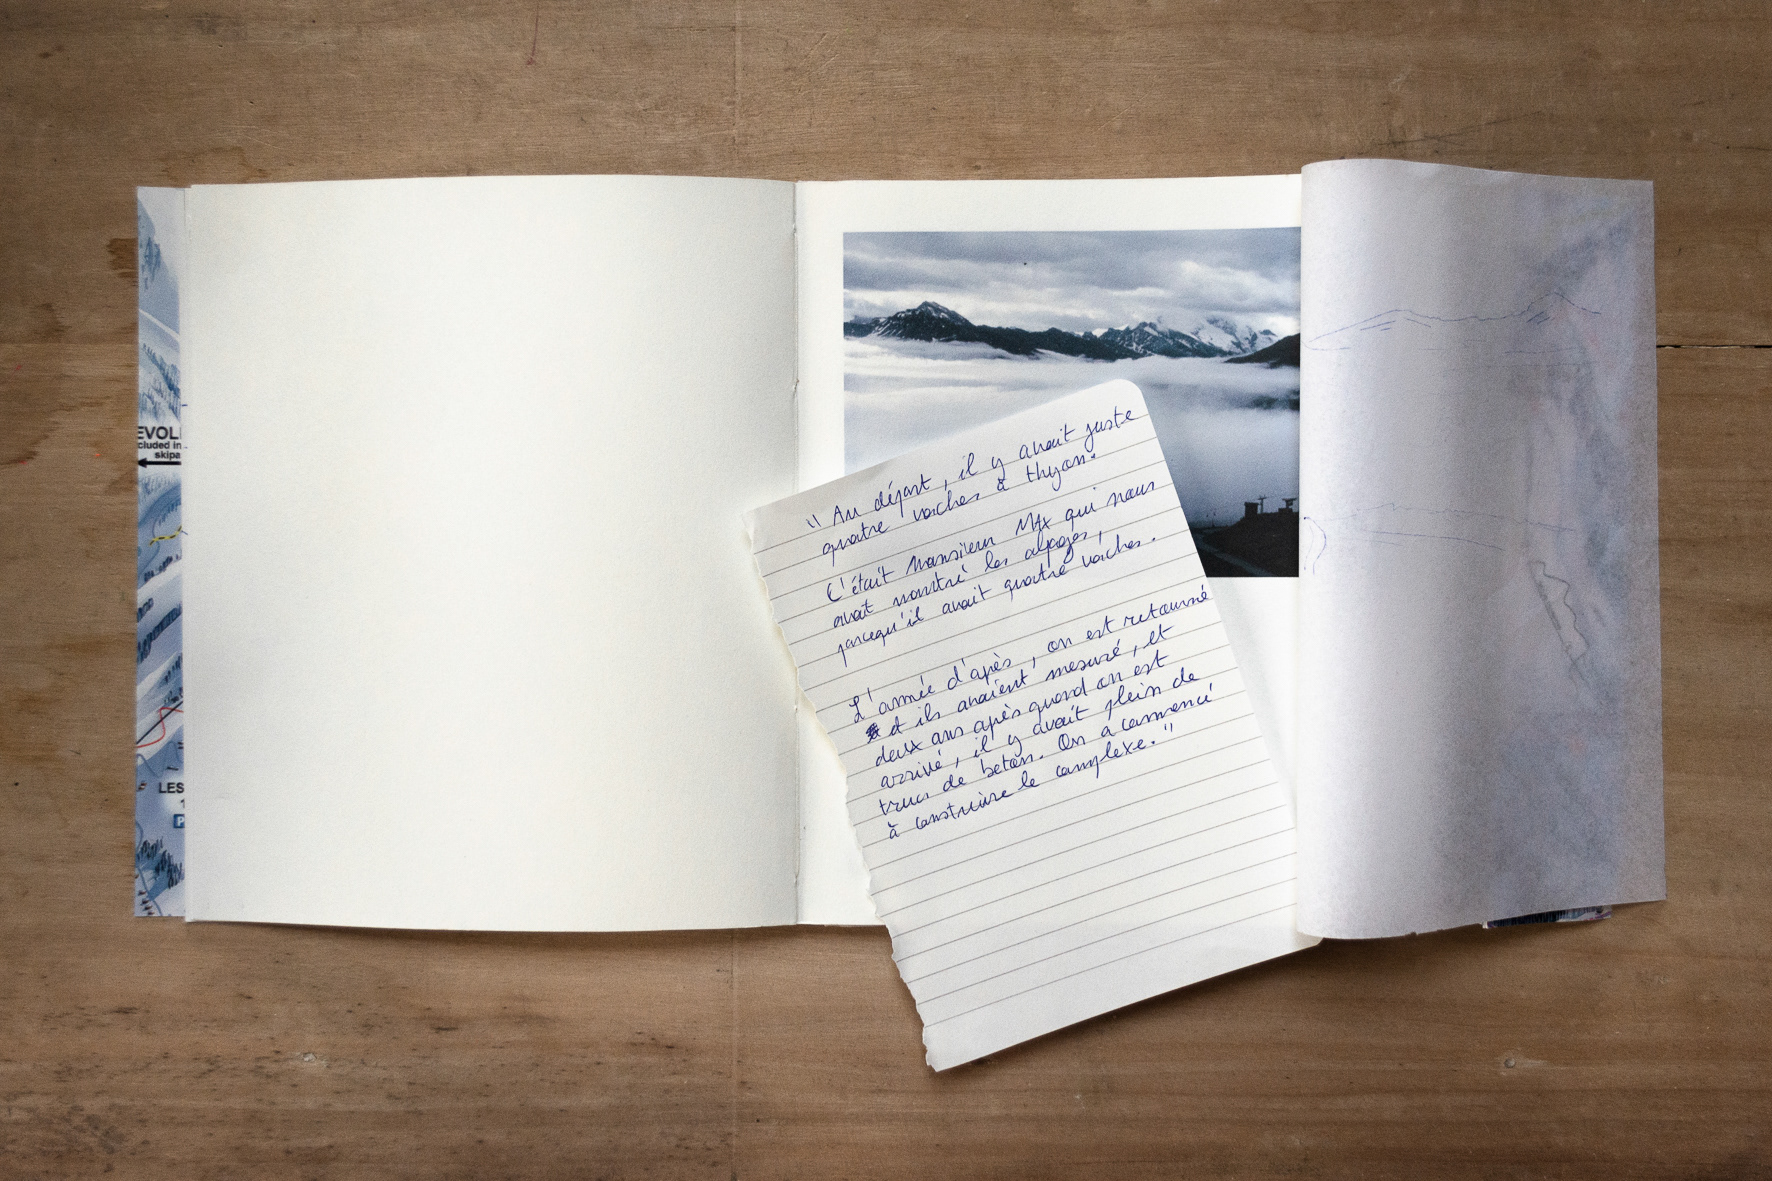 EVOL
cluded in
skipa
LES
1
P
"Au départ, il y avait juste
quatre vaches à thyon.
C'était Monsieur Mix qui nous
avait montré les alpages,
parcequ'il avait quatre vaches.
L'année d'après, on est retourné
et ils avaient mesuré, et
deux ans après quand on est
arrivé, il y avait plein de
trucs de beton. On a commencé
à construire le complexe."